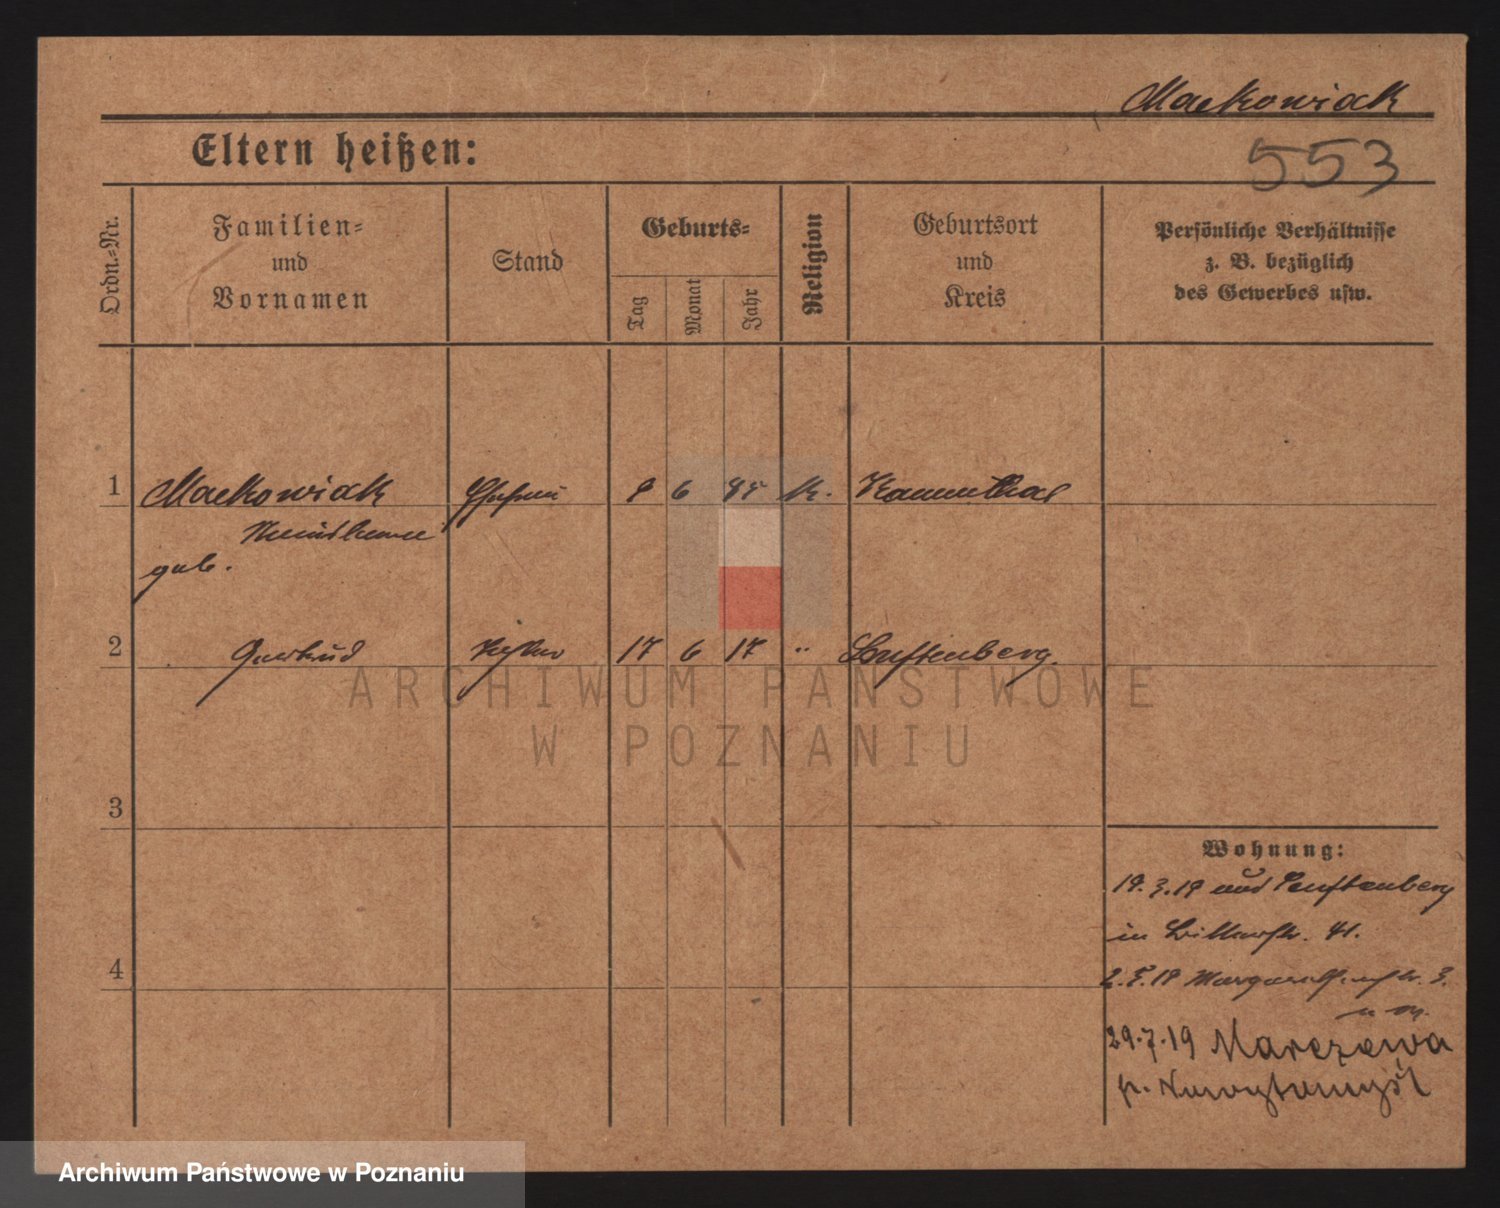 Maćkowiak
553
Eltern heißen:
Ordn.-Nr.
Familien-
und
Vornamen
Stand
Geburts-
Tag
Monat
Jahr
Religion
Geburtsort
und
Kreis
Persönliche Verhältnisse
z. B. bezüglich
des Gewerbes usw.
1 Maćkowiak 6 K.
geb.
2 Gertrud 17 6 17 " Senftenberg.
ARCHIWUM PAŃSTWOWE
W POZNANIU
3
Wohnung:
19.3.19 Senftenberg
in 41.
4
3.
29.7.19
p. Nowytomyśl
Archiwum Państwowe w Poznaniu